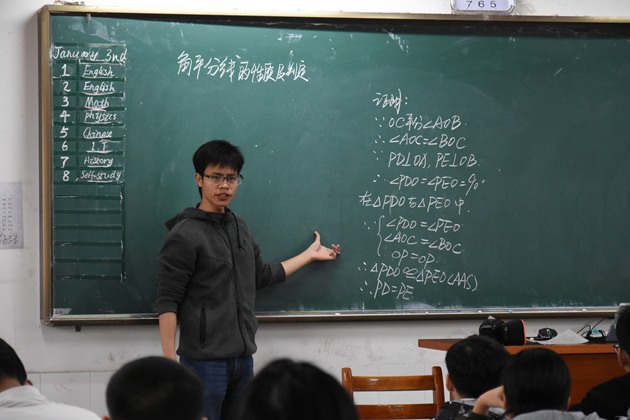 765
January 3rd
1 English
2 English
3 Math
4 physics
5 Chinese
6 IT
7 History
8 Self-study
角平分线的性质及判定
证明:
∵OC平分∠AOB
∴∠AOC=∠BOC
∵PD⊥OA, PE⊥OB.
∴∠PDO=∠PEO=90°
在△PDO与△PEO中.
∵{∠PDO=∠PEO
∠AOC=∠BOC
OP=OP.
∴△PDO≌△PEO(AAS)
∴PD=PE